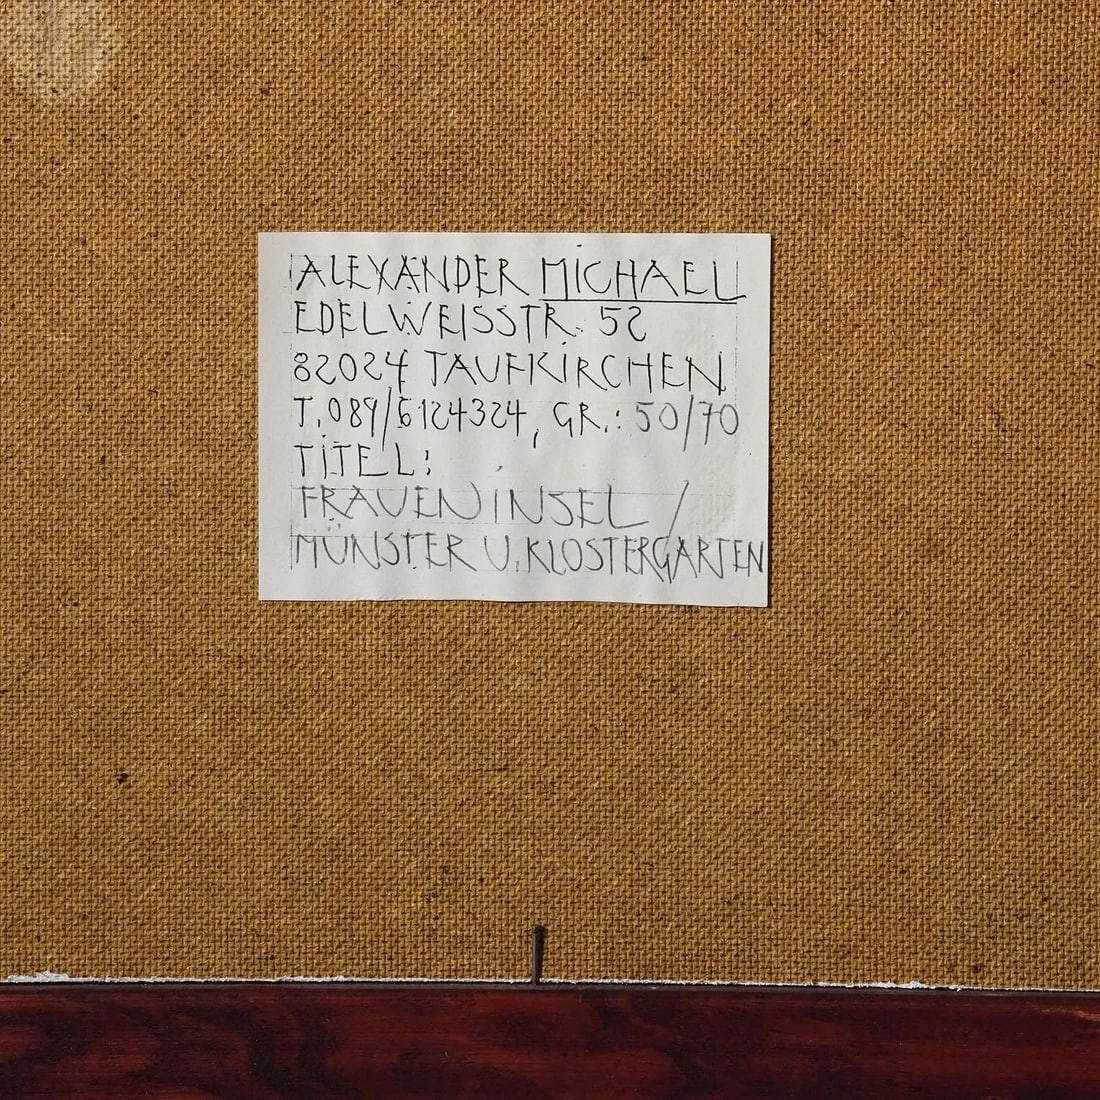 ALEXANDER MICHAEL
EDELWEISSTR. 52
82024 TAUFKIRCHEN
T. 089/6124324, GR.: 50/70
TITEL:
FRAUENINSEL /
MÜNSTER U. KLOSTERGARTEN